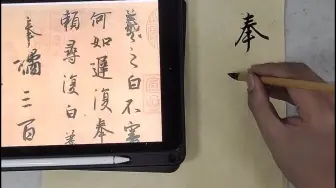 羲之白不審
何如遲復奉
頼尋復白羲
奉橘三百
奉